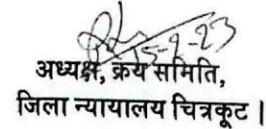 15-9-23
अध्यक्ष, क्रय समिति,
जिला न्यायालय चित्रकूट ।